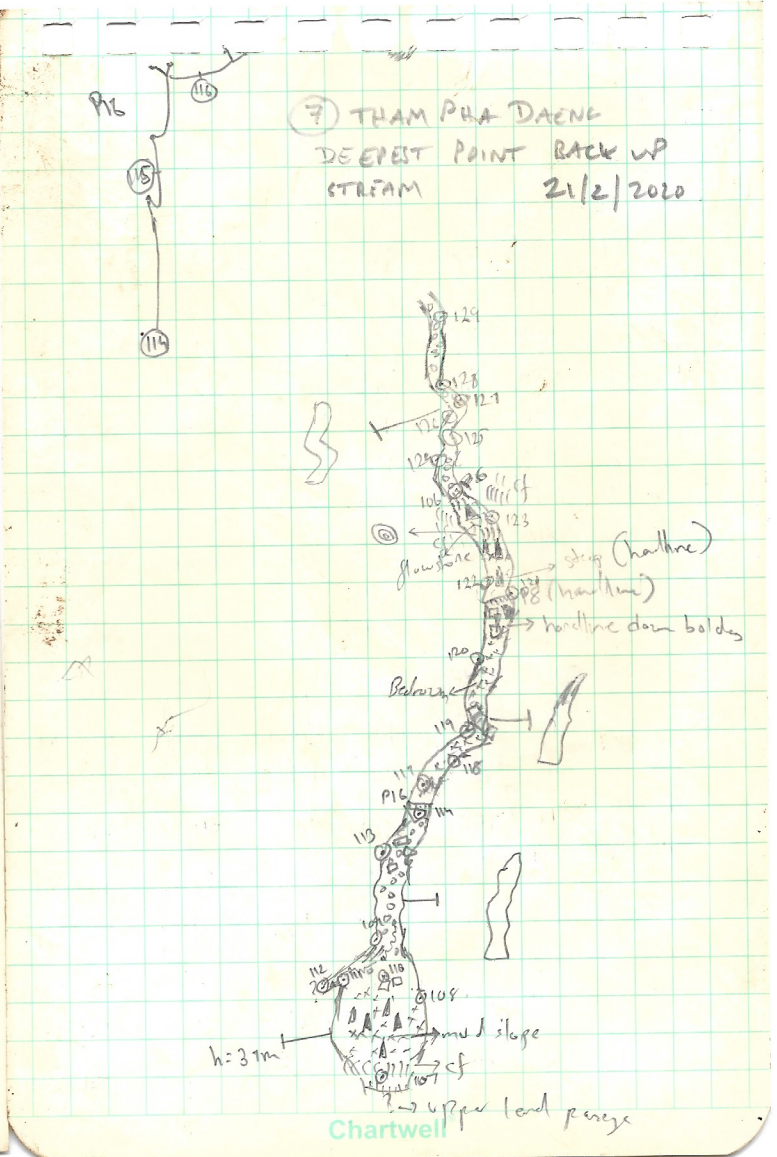 116
P16
115
114
7 THAM PHA DAENG
DEEPEST POINT BACK UP
STREAM 21/2/2020
129
128
127
126
125
124
P6
106
cf
123
flowstone
(handline)
122
121
P8 (handline)
handline down
120
119
118
117
P16
114
113
109
112
110
108
mud slope
cf
107
? → upper level passage
Chartwell